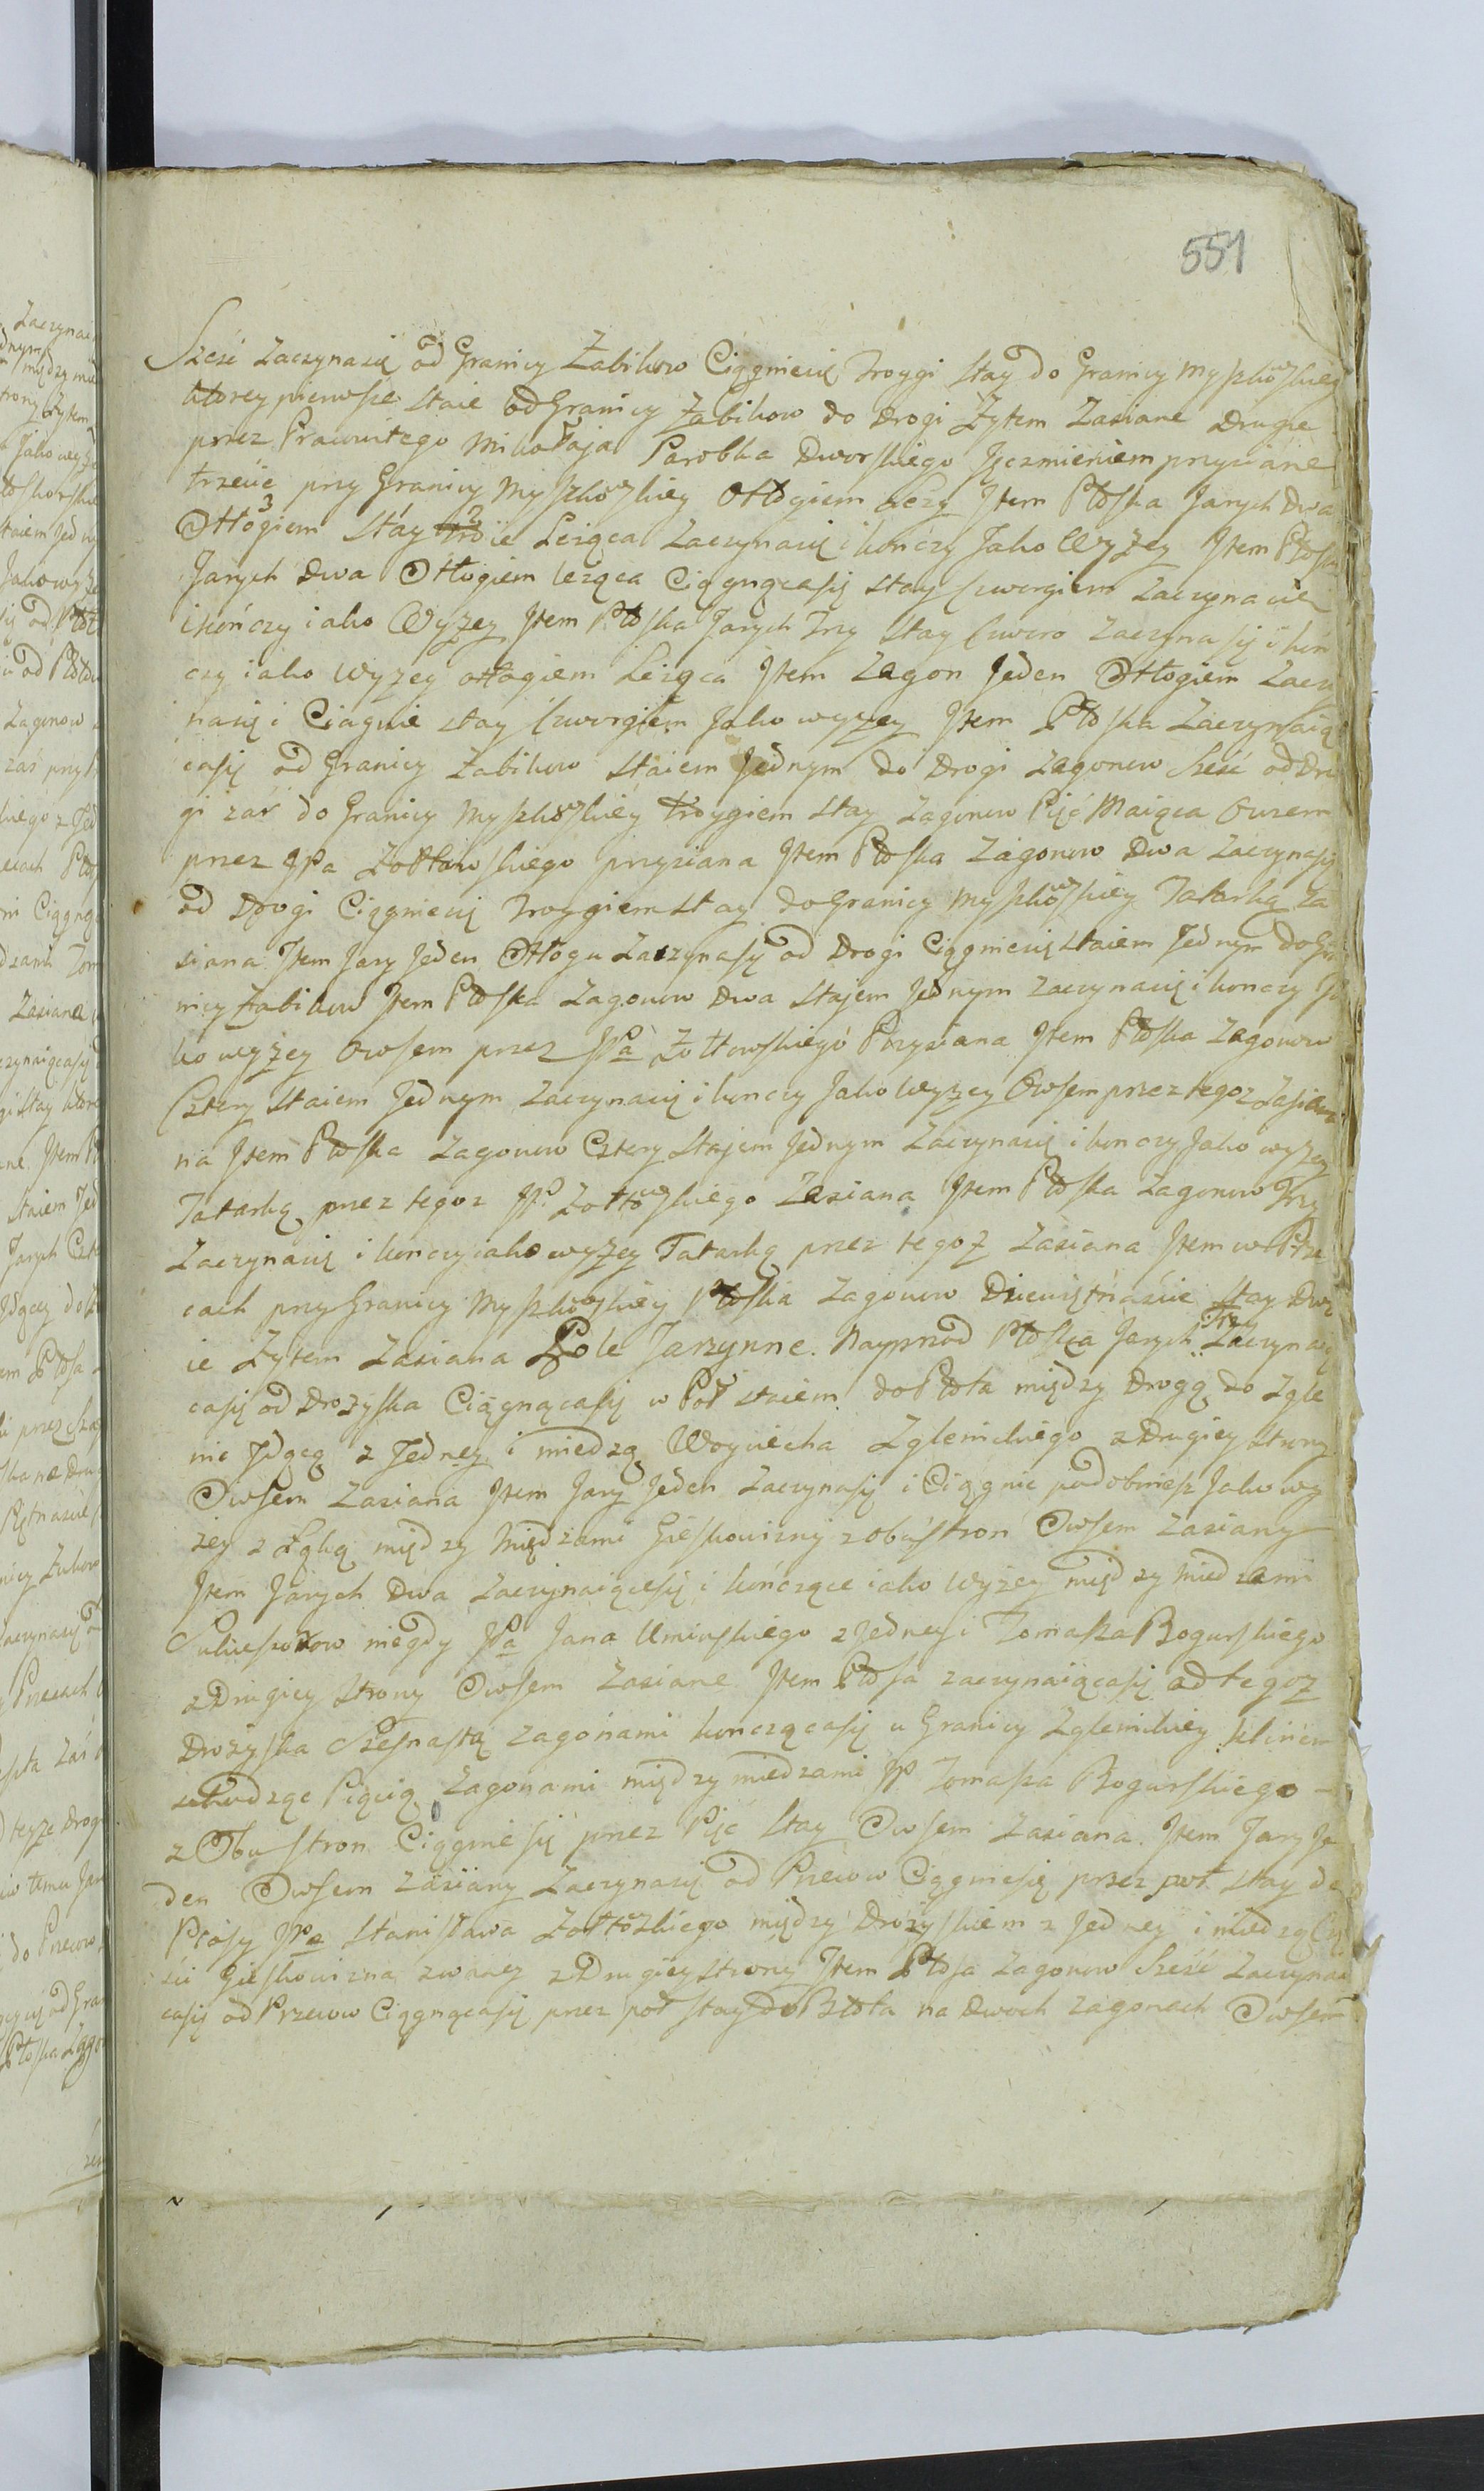 551
Sześć zaczynasię od Granicy Zabikow Ciągniesię Troygi Stay do Granicy Myszkowskiey
ktorey pierwsze Staie od Granicy Zabikow do Drogi Zytem Zasiane Drugie
przez Pracowitego Mikołaja Parobka Dworskiego Jęczmieniem przysiane
trzecie przy Granicy Myszkowskiey Otłogiem Lezy Jtem Płoska Jarych Dwa
Otłogiem Stay 3 Leżąca Zaczynasię i kończy Jako Wyzey Jtem Płoska
Jarych Dwa Otłogiem leząca Ciągnącasię Stay Czworgiem Zaczynasię
i kończy iako Wyzey Jtem Płoska Jarych Trzy Stay Czworo Zaczynasię i koń
czy iako Wyzey otłogiem Leząca Jtem Zagon Jeden Otłogiem Zaczy
nasię i Ciągnie Stay Czworgiem Jako wyzey Jtem Płoska Zaczynaią
casię od Granicy Zabikow Staiem Jednym do Drogi Zagonow Sześć od Dro
gi zaś do Granicy Myszkowskiey Troygiem Stay Zagonow Pięć Maiąca Owsem
przez JPa Zołtowskiego przysiana Jtem Płoska Zagonow Dwa Zaczynasię
od Drogi Ciągniesię Troygiem Stay do Granicy Myszkowskiey Tatarką Za
siana Jtem Jary Jeden Otłogu Zaczynasię od Drogi Ciągniesię Staiem Jednym do Gra
nicy Zabikow Jtem Płoska Zagonow Dwa Stajem Jednym Zaczynasię i konczy Ja
ko wyzey Owsem przez JPa Zołtowskiego Przysiana Jtem Płoska Zagonow
Cztery Staiem Jednym Zaczynasię i konczy Jako Wyzey Owsem przez tegoz Zasia
na Jtem Płoska Zagonow Cztery Stajem Jednym Zaczynasię i konczy Jako wyzey
Tatarką przez tegoz JP Zołtowskiego Zasiana Jtem Płoska Zagonow Trzy
Zaczynasię i konczy iako wyzey Tatarką przez tegoz Zasiana Jtem w Prze
cach przy Granicy Myszkowskiey Płoska Zagonow Dziewiętnaście Stay Dwo
ie Zytem Zasiana Pole Jarzynne. Nayprzod Płoska Jarych Trzy Zaczynaią
casię od Drozyska Ciągnącasię w Poł staiem do Płota między Drogą do Zgle
nic Jdącą z Jedney i miedzą Woyciecha Zglenickiego z Drugiey strony
Owsem Zasiana Jtem Jary Jeden Zaczynasię i Ciągnie podobniesz Jako wy
zey z Łąką między Międzami Gieskowizny z obustron Owsem zasiany
Jtem Jarych Dwa Zaczynaiącesię i kończące iako Wyzey między Miedzami
Sukcessorow niegdy JPa Jana Uminskiego z Jedney i Tomasza Bogurskiego
z Drugiey Strony Owsem Zasiane Jtem Płosa zaczynaiącasię od tegoz
Drozyska Szesnastą zagonami kończącasię u Granicy Zglenickiey klinem
schodząc Piącią Zagonami między miedzami JP. Tomasza Bogurskiego
z Obu stron Ciągniesię przez Pięć Stay Owsem Zasiana. Jtem Jary Je
den Owsem Zasiany Zaczynasię od Przecow Ciągniesię przez poł stay do
Płosy JPa Stanisława Zołtowskiego między Drozyskiem z Jedney i miedzą Czę
ści Gieskowizna zwaney z Drugiey strony Jtem Płosa Zagonow Sześć Zaczynaią
casię od Przecow Ciągnącasię przez poł stay do Błota na Dwoch Zagonach Owsem